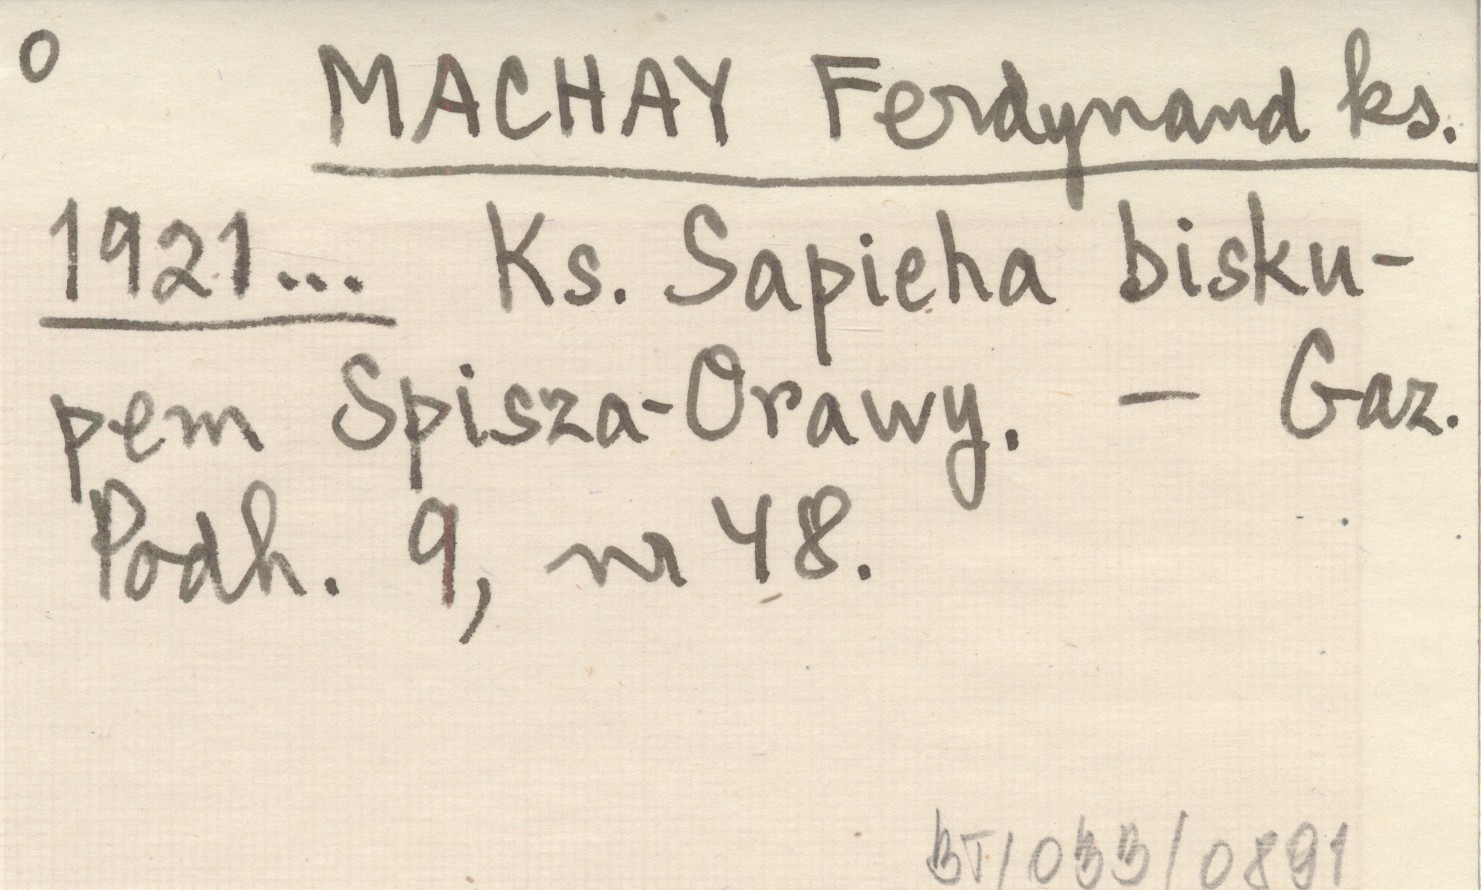 O
MACHAY Ferdynand ks.
1921... Ks. Sapieha bisku-
pem Spisza-Orawy. – Gaz.
Podh. 9, nr 48.
BT/033/0891